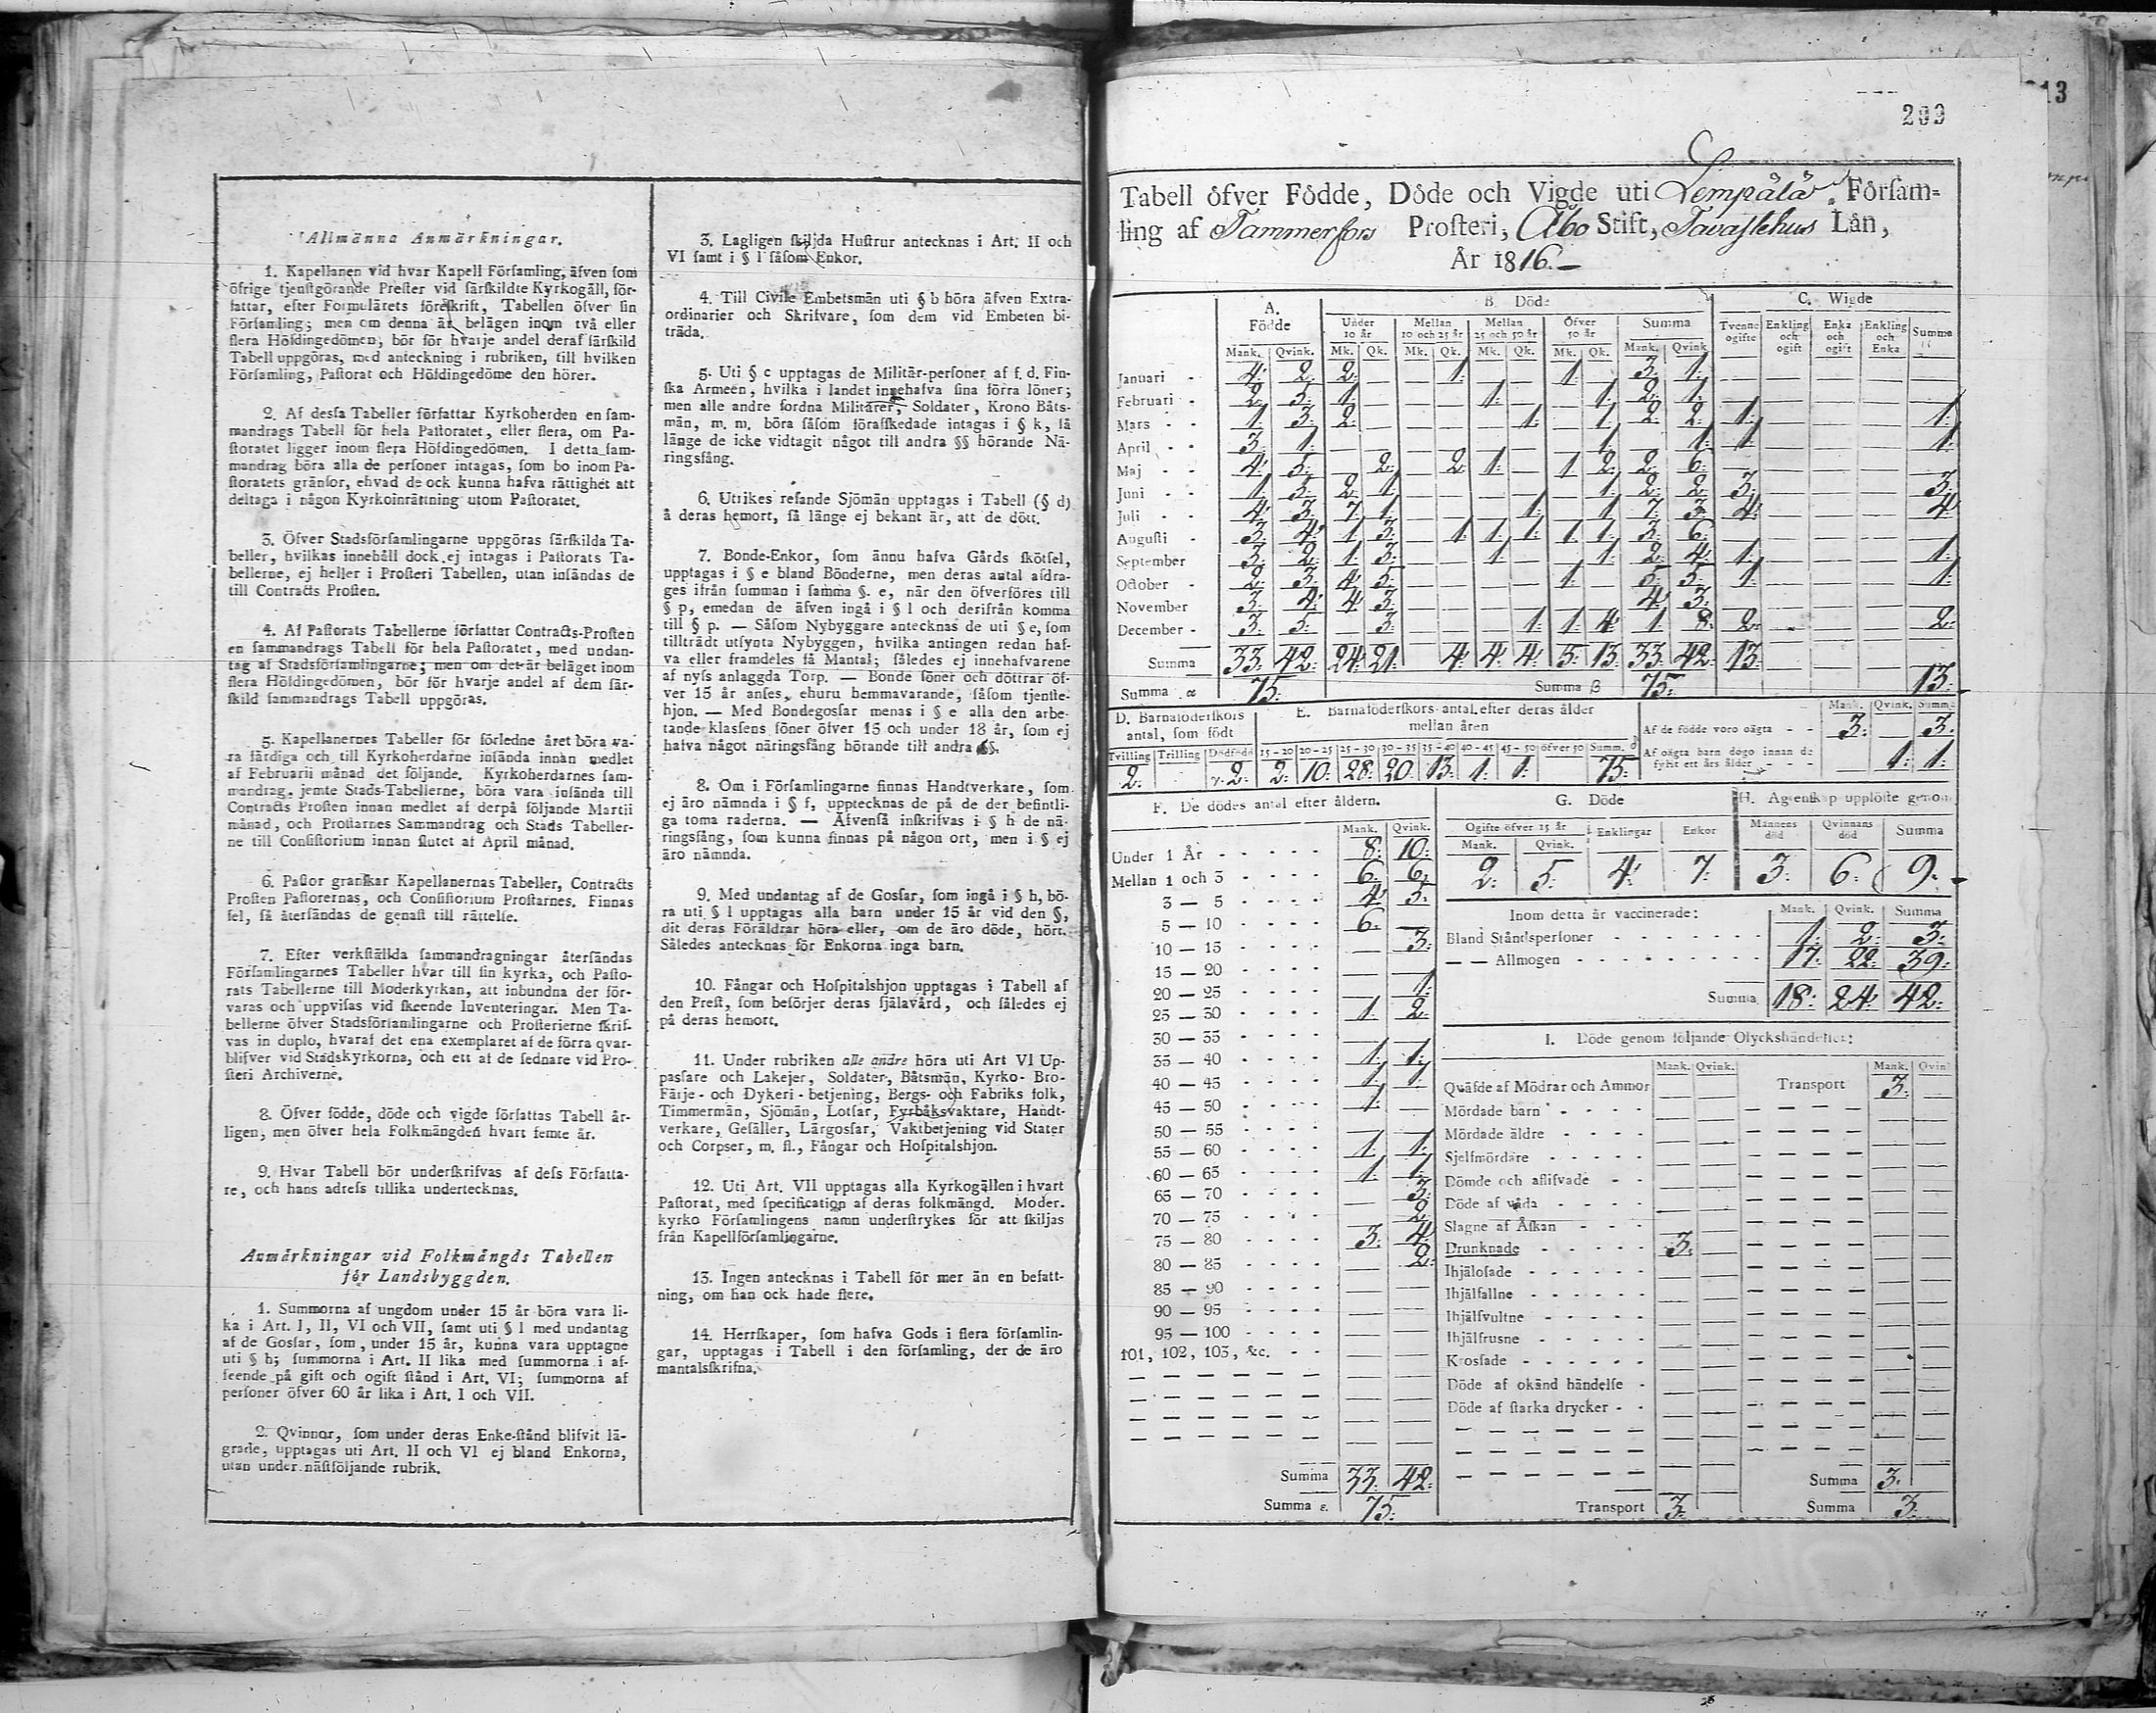 Allmänna Anmärkningar.
1. Kapellanen vid hvar Kapell Församling, äfven som
öfrige tjenstgörande Prester vid särskildte Kyrkogäll, för-
fattar, efter Formulärets föreskrift, Tabellen öfver sin
Församling; men om denna är belägen inom två eller
flera Höfdingedömen, bör för hvarje andel deraf särskild
Tabell uppgöras, med anteckning i rubriken, till hvilken
Församling, Pastorat och Höfdingedöme den hörer.
2. Af dessa Tabeller författar Kyrkoherden en sam-
mandrags Tabell för hela Pastoratet, eller flera, om Pa-
storatet ligger inom flera Höfdingedömen. I detta sam-
mandrag böra alla de personer intagas, som bo inom Pa-
storatets gränsor, ehvad de ock kunna hafva rättighet att
deltaga i någon Kyrkoinrättning utom Pastoratet.
3. Öfver Stadsförsamlingarne uppgöras särskilda Ta-
beller, hvilkas innehåll dock ej intagas i Pastorats Ta-
bellerne, ej heller i Prosteri Tabellen, utan insändas de
till Contracts Prosten.
4. Af Pastorats Tabellerne författar Contracts-Prosten
en sammandrags Tabell för hela Pastoratet, med undan-
tag af Stadsförsamlingarne; men om det är beläget inom
flera Höfdingedömen, bör för hvarje andel af dem sär-
skild sammandrags Tabell uppgöras.
5. Kapellanernes Tabeller för förledne året böra va-
ra färdiga och till Kyrkoherdarne insända innan medlet
af Februarii månad det följande. Kyrkoherdarnes sam-
mandrag, jemte Stads-Tabellerne, böra vara insända till
Contracts Prosten innan medlet af derpå följande Martii
månad, och Prostarnes Sammandrag och Stads Tabeller-
ne till Consistorium innan slutet af April månad.
6. Pastor granskar Kapellanernas Tabeller, Contracts
Prosten Pastorernas, och Consistorium Prostarnes. Finnas
fel, så återsändas de genast till rättelse.
7. Efter verkställda sammandragningar återsändas
Församlingarnes Tabeller hvar till sin kyrka, och Pasto-
rats Tabellerne till Moderkyrkan, att inbundna der för-
varas och uppvisas vid skeende Inventeringar. Men Ta-
bellerne öfver Stadsförsamlingarne och Prosterierne skrif-
vas in duplo, hvaraf det ena exemplaret af de förra qvar-
blifver vid Stadskyrkorna, och ett af de sednare vid Pro-
steri Archiverne.
8. Öfver födde, döde och vigde författas Tabell år-
ligen, men öfver hela Folkmängden hvart femte år.
9. Hvar Tabell bör underskrifvas af dess Författa-
re, och hans adress tillika undertecknas.
Anmärkningar vid Folkmängds Tabellen
för Landsbyggden.
1. Summorna af ungdom under 15 år böra vara li-
ka i Art. I, II, VI och VII, samt uti § l med undantag
af de Gossar, som, under 15 år, kunna vara upptagne
uti § h; summorna i Art. II lika med summorna i af-
seende på gift och ogift stånd i Art. VI; summorna af
personer öfver 60 år lika i Art. I och VII.
2. Qvinnor, som under deras Enke-stånd blifvit lä-
grade, upptagas uti Art. II och VI ej bland Enkorna,
utan under nästföljande rubrik.
3. Lagligen skiljda Hustrur antecknas i Art. II och
VI samt i § l såsom Enkor.
4. Till Civile Embetsmän uti § b böra äfven Extra-
ordinarier och Skrifvare, som dem vid Embeten bi-
träda.
5. Uti § c upptagas de Militär-personer af f. d. Fin-
ska Armeen, hvilka i landet innehafva sina förra löner;
men alle andre fordna Militärer, Soldater, Krono Båts-
män, m. m. böra såsom förafskedade intagas i § k, så
länge de icke vidtagit något till andra §§ hörande Nä-
ringsfång.
6. Utrikes resande Sjömän upptagas i Tabell (§ d)
å deras hemort, så länge ej bekant är, att de dött.
7. Bonde-Enkor, som ännu hafva Gårds skötsel,
upptagas i § e bland Bönderne, men deras antal afdra-
ges ifrån summan i samma §. e, när den öfverföres till
§ p, emedan de äfven ingå i § l och derifrån komma
till § p. — Såsom Nybyggare antecknas de uti § e, som
tillträdt utsynta Nybyggen, hvilka antingen redan haf-
va eller framdeles få Mantal; således ej innehafvarene
af nyss anlaggda Torp. — Bonde söner och döttrar öf-
ver 15 år anses, ehuru hemmavarande, såsom tjenste-
hjon. — Med Bondegossar menas i § e alla den arbe-
tande klassens söner öfver 15 och under 18 år, som ej
hafva något näringsfång hörande till andra §§.
8. Om i Församlingarne finnas Handtverkare, som
ej äro nämnda i § f, upptecknas de på de der befintli-
ga toma raderna. — Äfvenså inskrifvas i § h de nä-
ringsfång, som kunna finnas på någon ort, men i § ej
äro nämnda.
9. Med undantag af de Gossar, som ingå i § h, bö-
ra uti § l upptagas alla barn under 15 år vid den §,
dit deras Föräldrar höra eller, om de äro döde, hört.
Således antecknas för Enkorna inga barn.
10. Fångar och Hospitalshjon upptagas i Tabell af
den Prest, som besörjer deras själavård, och således ej
på deras hemort.
11. Under rubriken alle andre höra uti Art VI Up-
passare och Lakejer, Soldater, Båtsmän, Kyrko- Bro-
Färje- och Dykeri-betjening, Bergs- och Fabriks folk,
Timmermän, Sjömän, Lotsar, Fyrbåksvaktare, Handt-
verkare, Gesäller, Lärgossar, Vaktbetjening vid Stater
och Corpser, m. fl., Fångar och Hospitalshjon.
12. Uti Art. VII upptagas alla Kyrkogällen i hvart
Pastorat, med specification af deras folkmängd. Moder-
kyrko Församlingens namn understrykes för att skiljas
från Kapellförsamlingarne.
13. Ingen antecknas i Tabell för mer än en befatt-
ning, om han ock hade flere.
14. Herrskaper, som hafva Gods i flera församlin-
gar, upptagas i Tabell i den församling, der de äro
mantalsskrifna.
13
299
Tabell öfver Födde, Döde och Vigde uti Lempälä Försam-
ling af Tammerfors Prosteri, Åbo Stift, Tavastehus Län,
År 1816.
A. Födde B. Döde C. Wigde
Under 10 år Mellan 10 och 25 år Mellan 25 och 50 år Öfver 50 år Summa Tvenne ogifte Enkling och ogift Enka och ogift Enkling och Enka Summa
Mank. Qvink. Mk. Qk. Mk. Qk. Mk. Qk. Mk. Qk. Mank. Qvink
Januari - 4. 2. 2. — — 1. — — 1. — 3. 1. — — — — —
Februari - 2. 5. 1. — — — 1. — — 1. 2. 1. — — — — —
Mars - - 1. 3. 2. — — — — 1. — 1. 2. 2. 1. — — — 1.
April - - 3. 1. — — — — — — — 1. — 1. 1. — — — 1.
Maj - - 4. 5. — 2. — 2. 1. — 1. 2. 2. 6. — — — — —
Juni - - 1. 5. 2. 1. — — — — — 1. 2. 2. 3. — — — 3.
Juli - - 4. 3. 7. 1. — — — 1. — 1. 7. 3. 4. — — — 4.
Augusti - 3. 4. 1. 3. — 1. 1. 1. 1. 1. 3. 6. — — — — —
September 3. 2. 1. 3. — — 1. — — 1. 2. 4. 1. — — — 1.
October - 2. 3. 4. 5. — — — — 1. — 5. 5. 1. — — — 1.
November 3. 4. 4. 3. — — — — — — 4. 3. — — — — —
December - 3. 5. — 3. — — — 1. 1. 4. 1. 8. 2. — — — 2.
Summa 33. 42. 24. 21. 4. 4. 4. 5. 13. 33. 42. 13.
Summa α 75. Summa β 75. 13.
D. Barnaföderskors antal, som födt
Tvilling Trilling Dödfödd
2. 2.
E. Barnaföderskors antal efter deras ålder mellan åren
15-20 20-25 25-30 30-35 35-40 40-45 45-50 öfver 50 Summ.
2. 10. 28. 20. 13. 1. 1. 75.
Mank. Qvink. Summa
Af de födde voro oägta - - 3. — 3.
Af oägta barn dogo innan de
fyllt ett års ålder - - - — 1. 1.
F. De dödes antal efter åldern.
Mank. Qvink.
Under 1 År - - - - - 8. 10.
Mellan 1 och 3 - - - - 6. 6.
3 — 5 - - - - 4. 5.
5 — 10 - - - - 6. —
10 — 15 - - - - — 3.
15 — 20 - - - - — —
20 — 25 - - - - — 1.
25 — 30 - - - - 1. 2.
30 — 35 - - - - — —
35 — 40 - - - - 1. 1.
40 — 45 - - - - 1. 1.
45 — 50 - - - - 1. —
50 — 55 - - - - — —
55 — 60 - - - - 1. 1.
60 — 65 - - - - 1. 1.
65 — 70 - - - - — 3.
70 — 75 - - - - — 2.
75 — 80 - - - - 3. 4.
80 — 85 - - - - — 2.
85 — 90 - - - - — —
90 — 95 - - - - — —
95 — 100 - - - - — —
101, 102, 103, &c. - - — —
Summa 33. 42.
Summa ε. 75.
G. Döde
Ogifte öfver 15 år Enklingar Enkor
Mank. Qvink.
2. 5. 4. 7.
H. Ägtenskap upplöste genom
Männens död Qvinnans död Summa
3. 6. 9.
Inom detta år vaccinerade: Mank. Qvink. Summa
Bland Ståndspersoner - - - 1. 2. 3.
— — Allmogen - - - 17. 22. 39.
Summa 18. 24. 42.
I. Döde genom följande Olyckshändelser:
Mank. Qvink. Mank. Qvin
Qväfde af Mödrar och Ammor — — Transport 3. —
Mördade barn - - - -
Mördade äldre - - - -
Sjelfmördare - - - - -
Dömde och aflifvade - -
Döde af våda - - - -
Slagne af Åskan - - -
Drunknade - - - - - 3. —
Ihjälosade - - - - - -
Ihjälfallne - - - - - -
Ihjälsvultne - - - - -
Ihjälfrusne - - - - -
Krossade - - - - - -
Döde af okänd händelse -
Döde af starka drycker - -
Summa 3.
Transport 3. Summa 3.